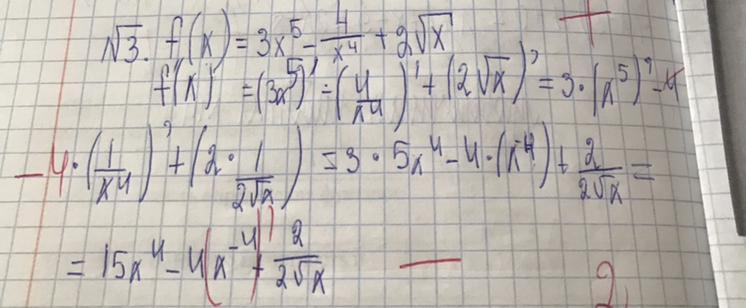 √3. f(x) = 3x⁵ - 4/x⁴ + 2√x +
f'(x) = (3x⁵)' - (4/x⁴)' + (2√x)' = 3 · (x⁵)' - 4
- 4 · (1/x⁴)' + (2 · 1/2√x) = 3 · 5x⁴ - 4 · (x⁻⁴) + 2/2√x =
= 15x⁴ - 4(x⁻⁴)' + 2/2√x — 2